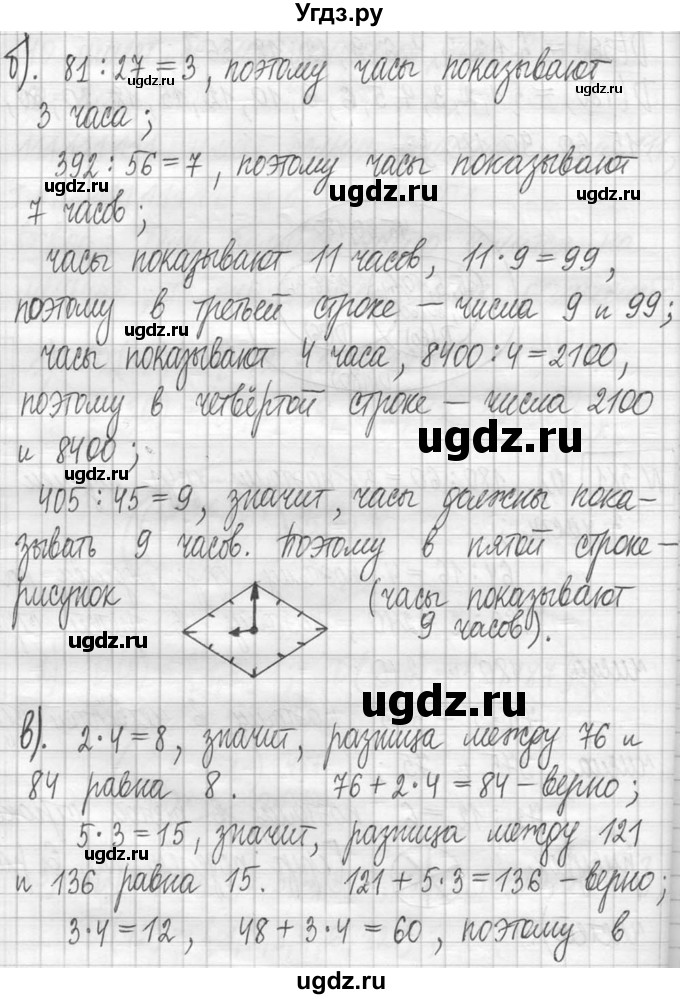 Угдз.ру
б). 81 : 27 = 3, поэтому часы показывают
3 часа;
392 : 56 = 7, поэтому часы показывают
7 часов;
часы показывают 11 часов, 11 · 9 = 99,
поэтому в третьей строке – числа 9 и 99;
часы показывают 4 часа, 8400 : 4 = 2100,
поэтому в четвёртой строке – числа 2100
и 8400;
405 : 45 = 9, значит, часы должны пока-
зывать 9 часов. Поэтому в пятой строке –
рисунок (часы показывают
9 часов).
в). 2 · 4 = 8, значит, разница между 76 и
84 равна 8. 76 + 2 · 4 = 84 – верно;
5 · 3 = 15, значит, разница между 121
и 136 равна 15. 121 + 5 · 3 = 136 – верно;
3 · 4 = 12, 48 + 3 · 4 = 60, поэтому в
ugdz.ru
ugdz.ru
ugdz.ru
ugdz.ru
ugdz.ru
ugdz.ru
ugdz.ru
ugdz.ru
ugdz.ru
ugdz.ru
ugdz.ru
ugdz.ru
ugdz.ru